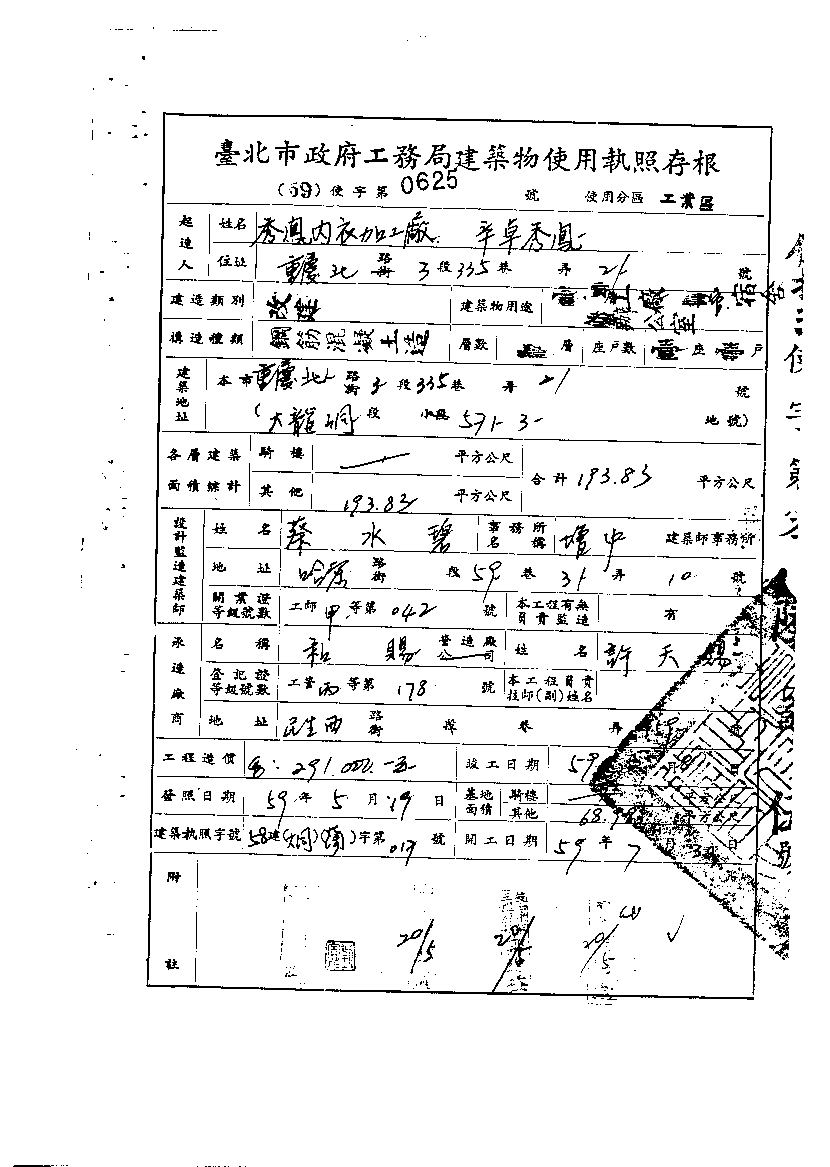 臺北市政府工務局建築物使用執照存根
(59)使字第0625號 使用分區 工業區
起造人 姓名 秀鳳內衣加工廠 平卓秀鳳
住址 重慶北 路街 3段335巷 弄21號
建造類別 改建 建築物用途 工廠 宿舍 辦公室
構造種類 鋼筋混凝土造 層數 層 座戶數 壹座壹戶
建築地址 本市重慶北 路街 3段335巷 弄21號
(大龍峒段 小段 571-3 地號)
各層建築面積總計 騎樓 平方公尺 合計193.83平方公尺
其他 193.83 平方公尺
設計監造建築師 姓名 蔡水碧 事務所名稱 增中 建築師事務所
地址 哈密 路街 段59巷31弄10號
開業證等級號數 工師甲等第042號 本工程有無負責監造 有
承造廠商 名稱 和賜 營造廠公司 姓名 許天賜
登記證等級號數 工營丙等第178號 本工程負責技師(副)姓名
地址 民生西 路街 段 巷 弄 號
工程造價 291,000 竣工日期 59
發照日期 59年5月19日 基地面積 騎樓 平方公尺
其他 平方公尺
建築執照字號 58建(大同)字第017號 開工日期 59年7月 日
附註
20/5 20/5 20/5